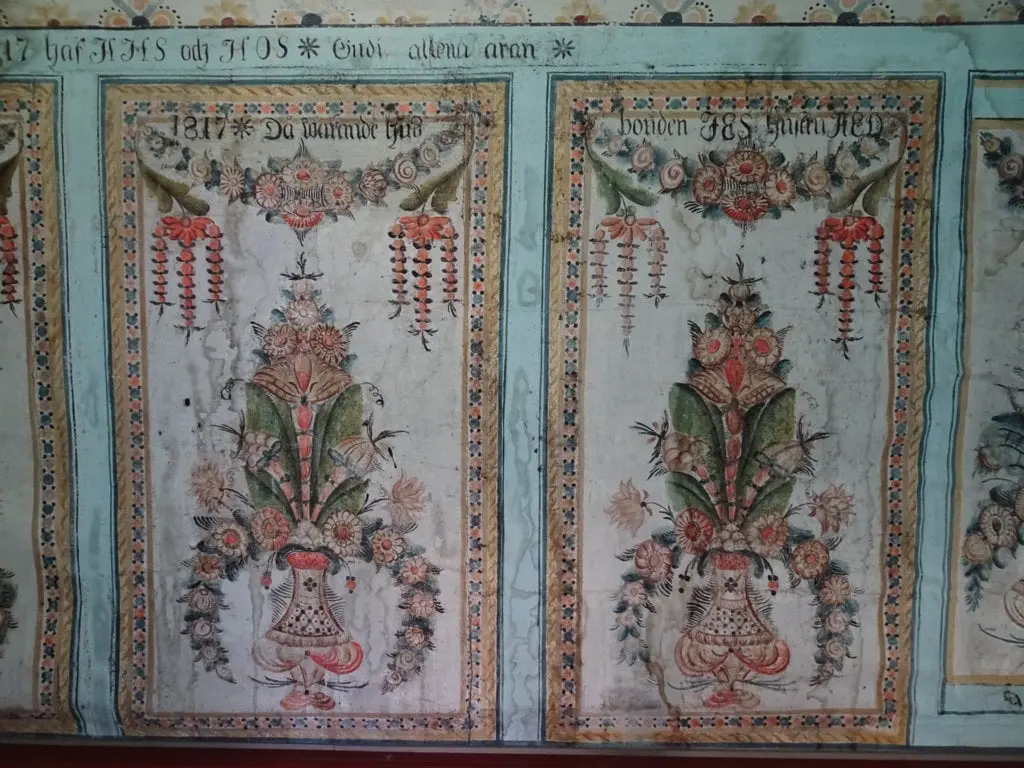 17 haf HHS och HOS * Gudi allena äran *
1817 * Då warande
bonden JES hustru AED